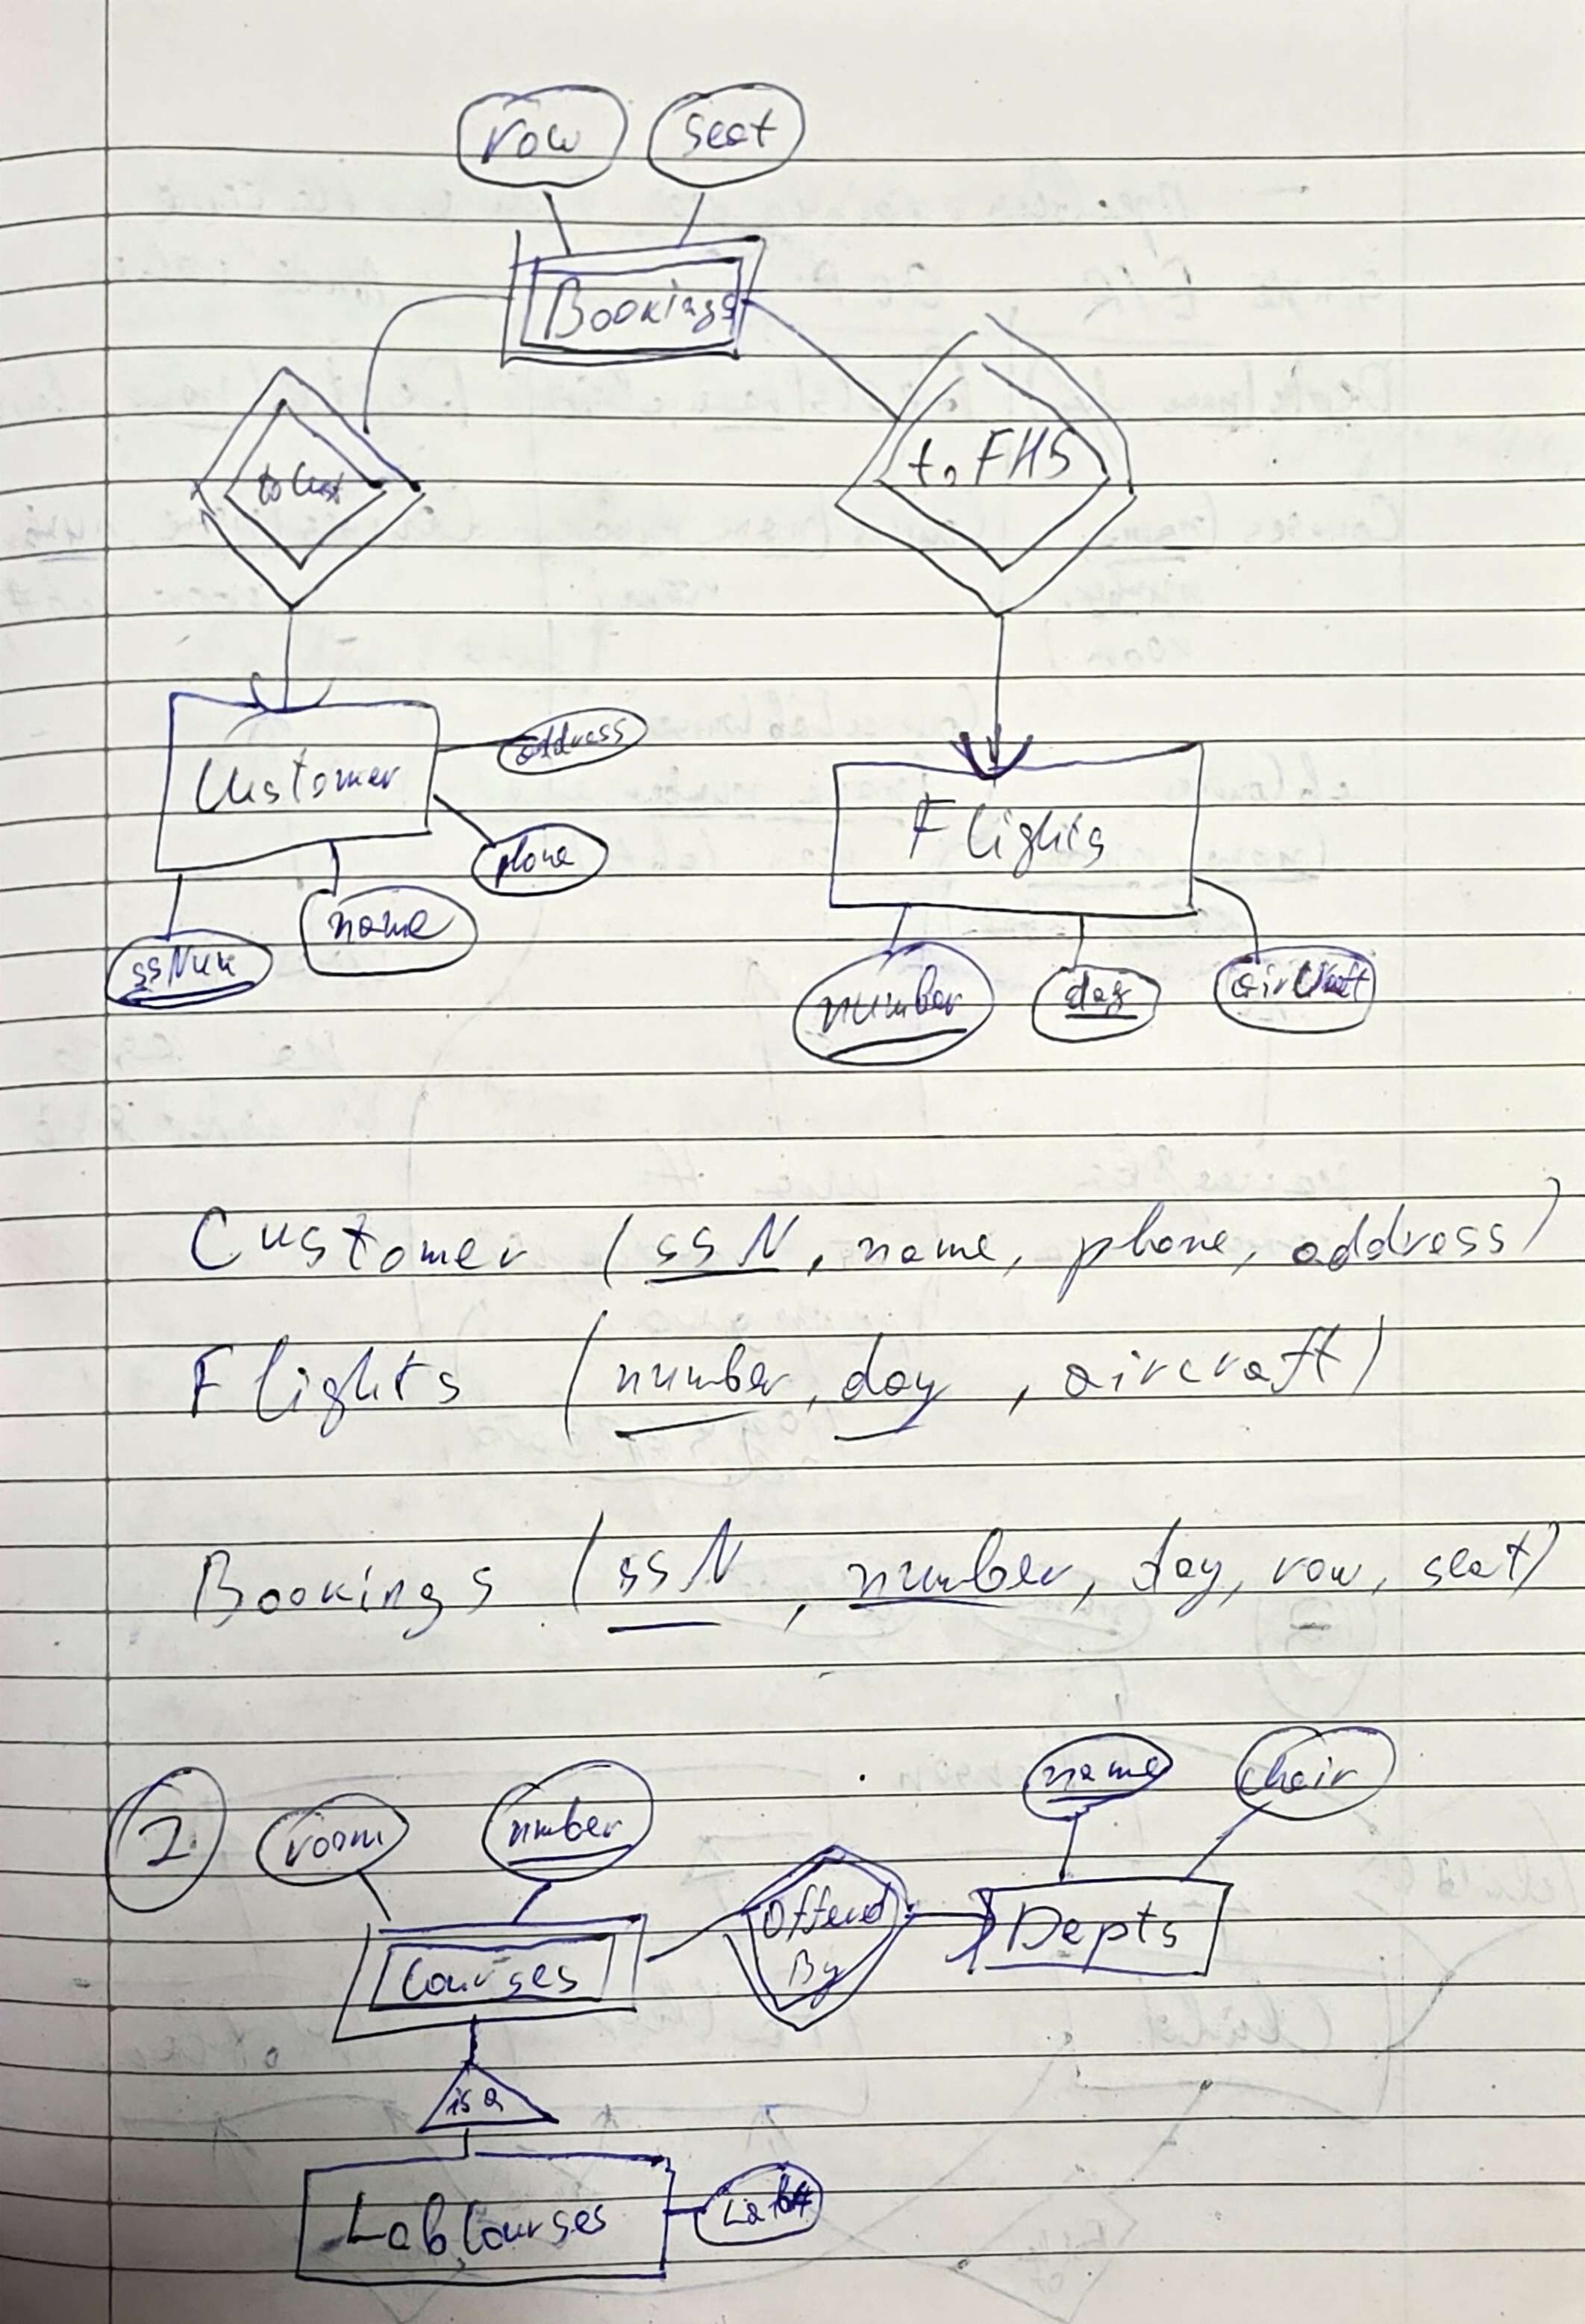 row seat
Bookings
to Cust
to Flts
Customer
address
phone
name
ssNum
Flights
number day aircraft
Customer (ssN, name, phone, address)
Flights (number, day, aircraft)
Bookings (ssN, number, day, row, seat)
2
room number name chair
Courses
Offered
By
Depts
is a
LabCourses
Lab#